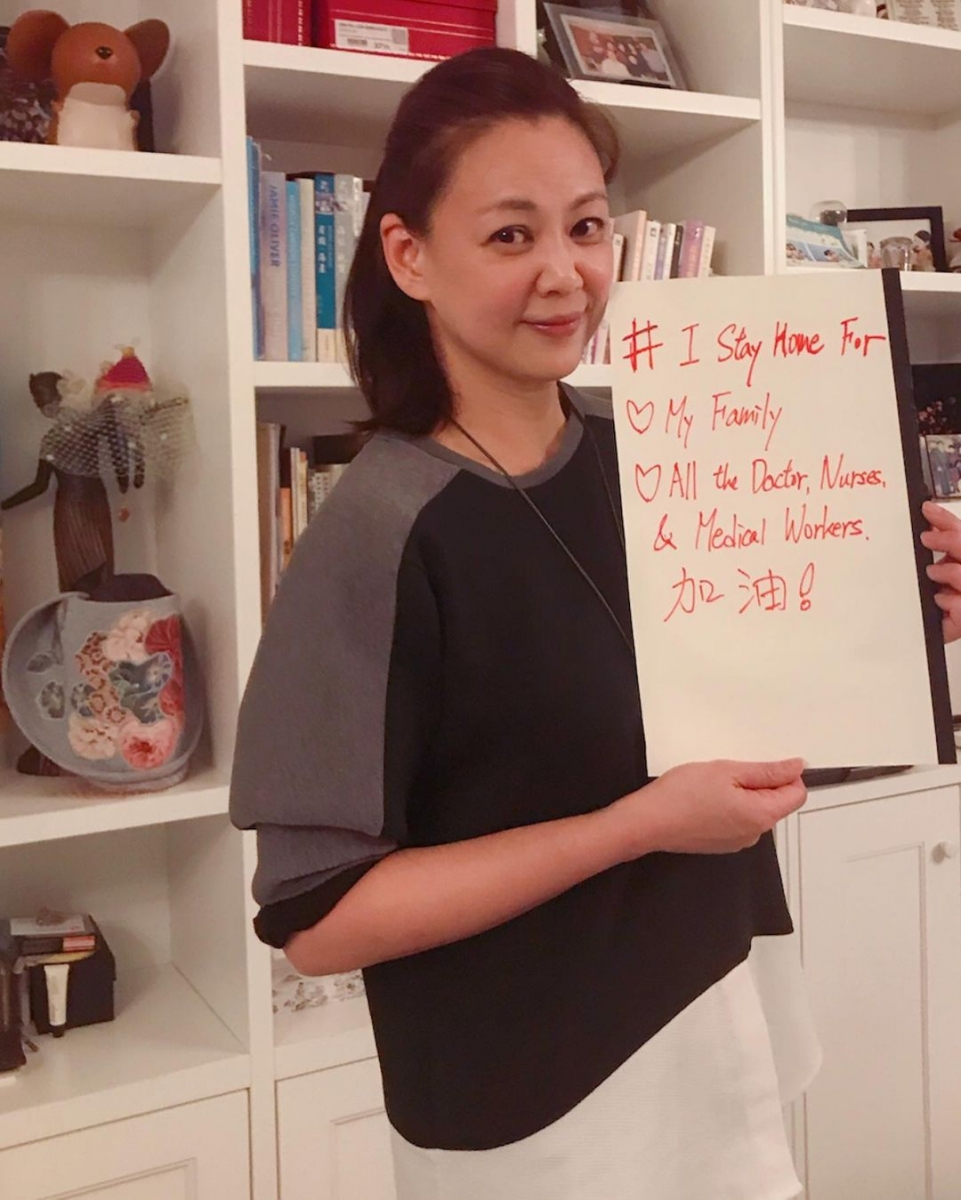 JAMIE OLIVER
# I Stay Home For
♡ My Family
♡ All the Doctor, Nurses,
& Medical Workers.
加油!